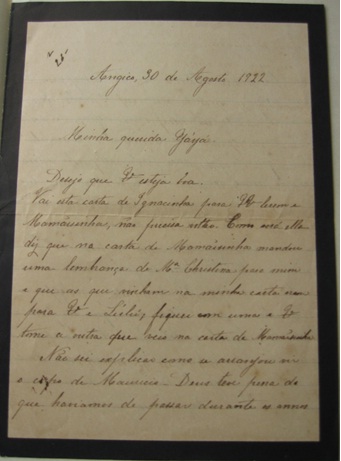 25
Angico, 30 de Agosto 1922
Minha querida Yáyá
Desejo que V esteja boa.
Vai esta carta de Ignacinha para V lerem e
Mamãesinha, não precisa voltar. Como Ella
diz que na carta de Mamãesinha mandou
uma lembrança de Mª Christina para mim
e que as que vinham na minha carta eram
para V e fiquei com uma e V
tome a outra que veio na carta de Mamãesinha
Não sei explicar como se arranjou
a de Mauricio. Deus teve pena do
que haviamos de passar durante os annos